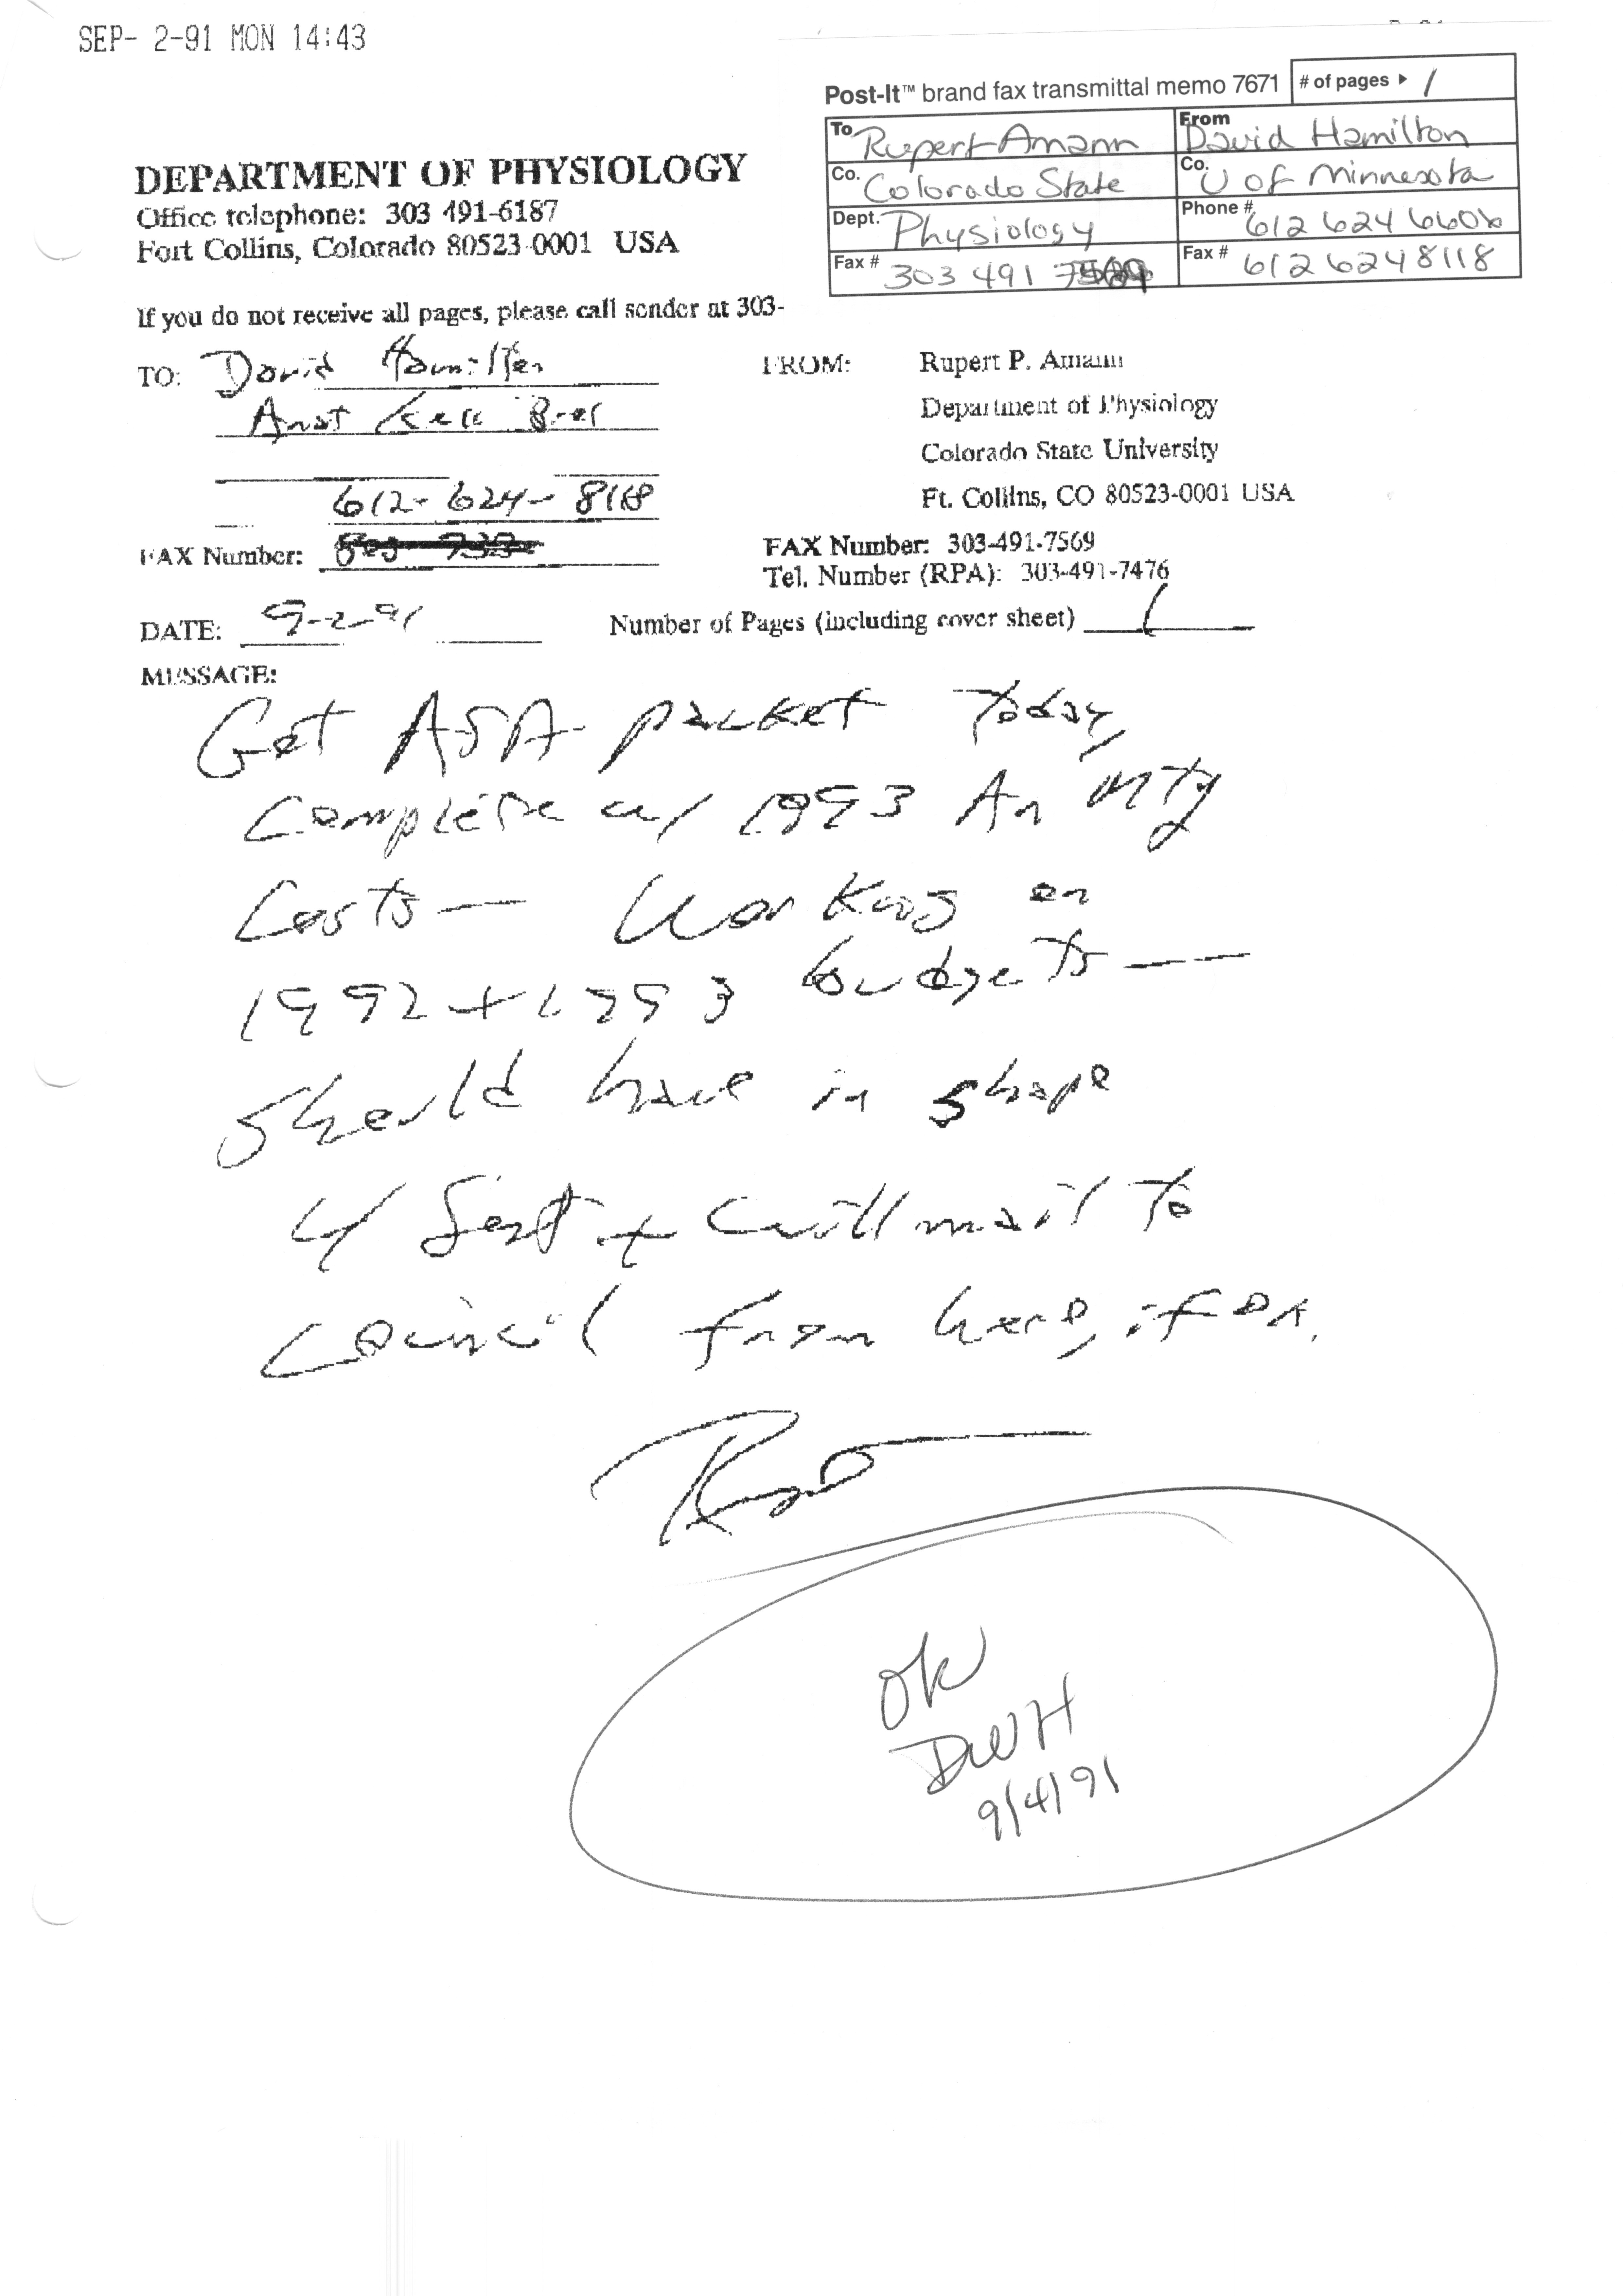 SEP- 2-91 MON 14:43
Post-It™ brand fax transmittal memo 7671 # of pages ▸ 1
To Rupert Amann From David Hamilton
Co. Colorado State Co. U of Minnesota
Dept. Physiology Phone # 612 624 6606
Fax # 303 491 Fax # 612 624 8118
DEPARTMENT OF PHYSIOLOGY
Office telephone: 303 491-6187
Fort Collins, Colorado 80523-0001 USA
If you do not receive all pages, please call sender at 303-
TO: David Hamilton
Anat Cell Biol
612-624-8118
FAX Number:
FROM: Rupert P. Amann
Department of Physiology
Colorado State University
Ft. Collins, CO 80523-0001 USA
FAX Number: 303-491-7569
Tel. Number (RPA): 303-491-7476
DATE: 9-2-91 Number of Pages (including cover sheet) 1
MESSAGE:
Got ASA packet today,
complete w/ 1993 An Mtg
costs — Working on
1992 + 1993 budgets —
Should have in shape
4 Sept + will mail to
council from here, if OK.
Rupert
OK
DWH
9/4/91